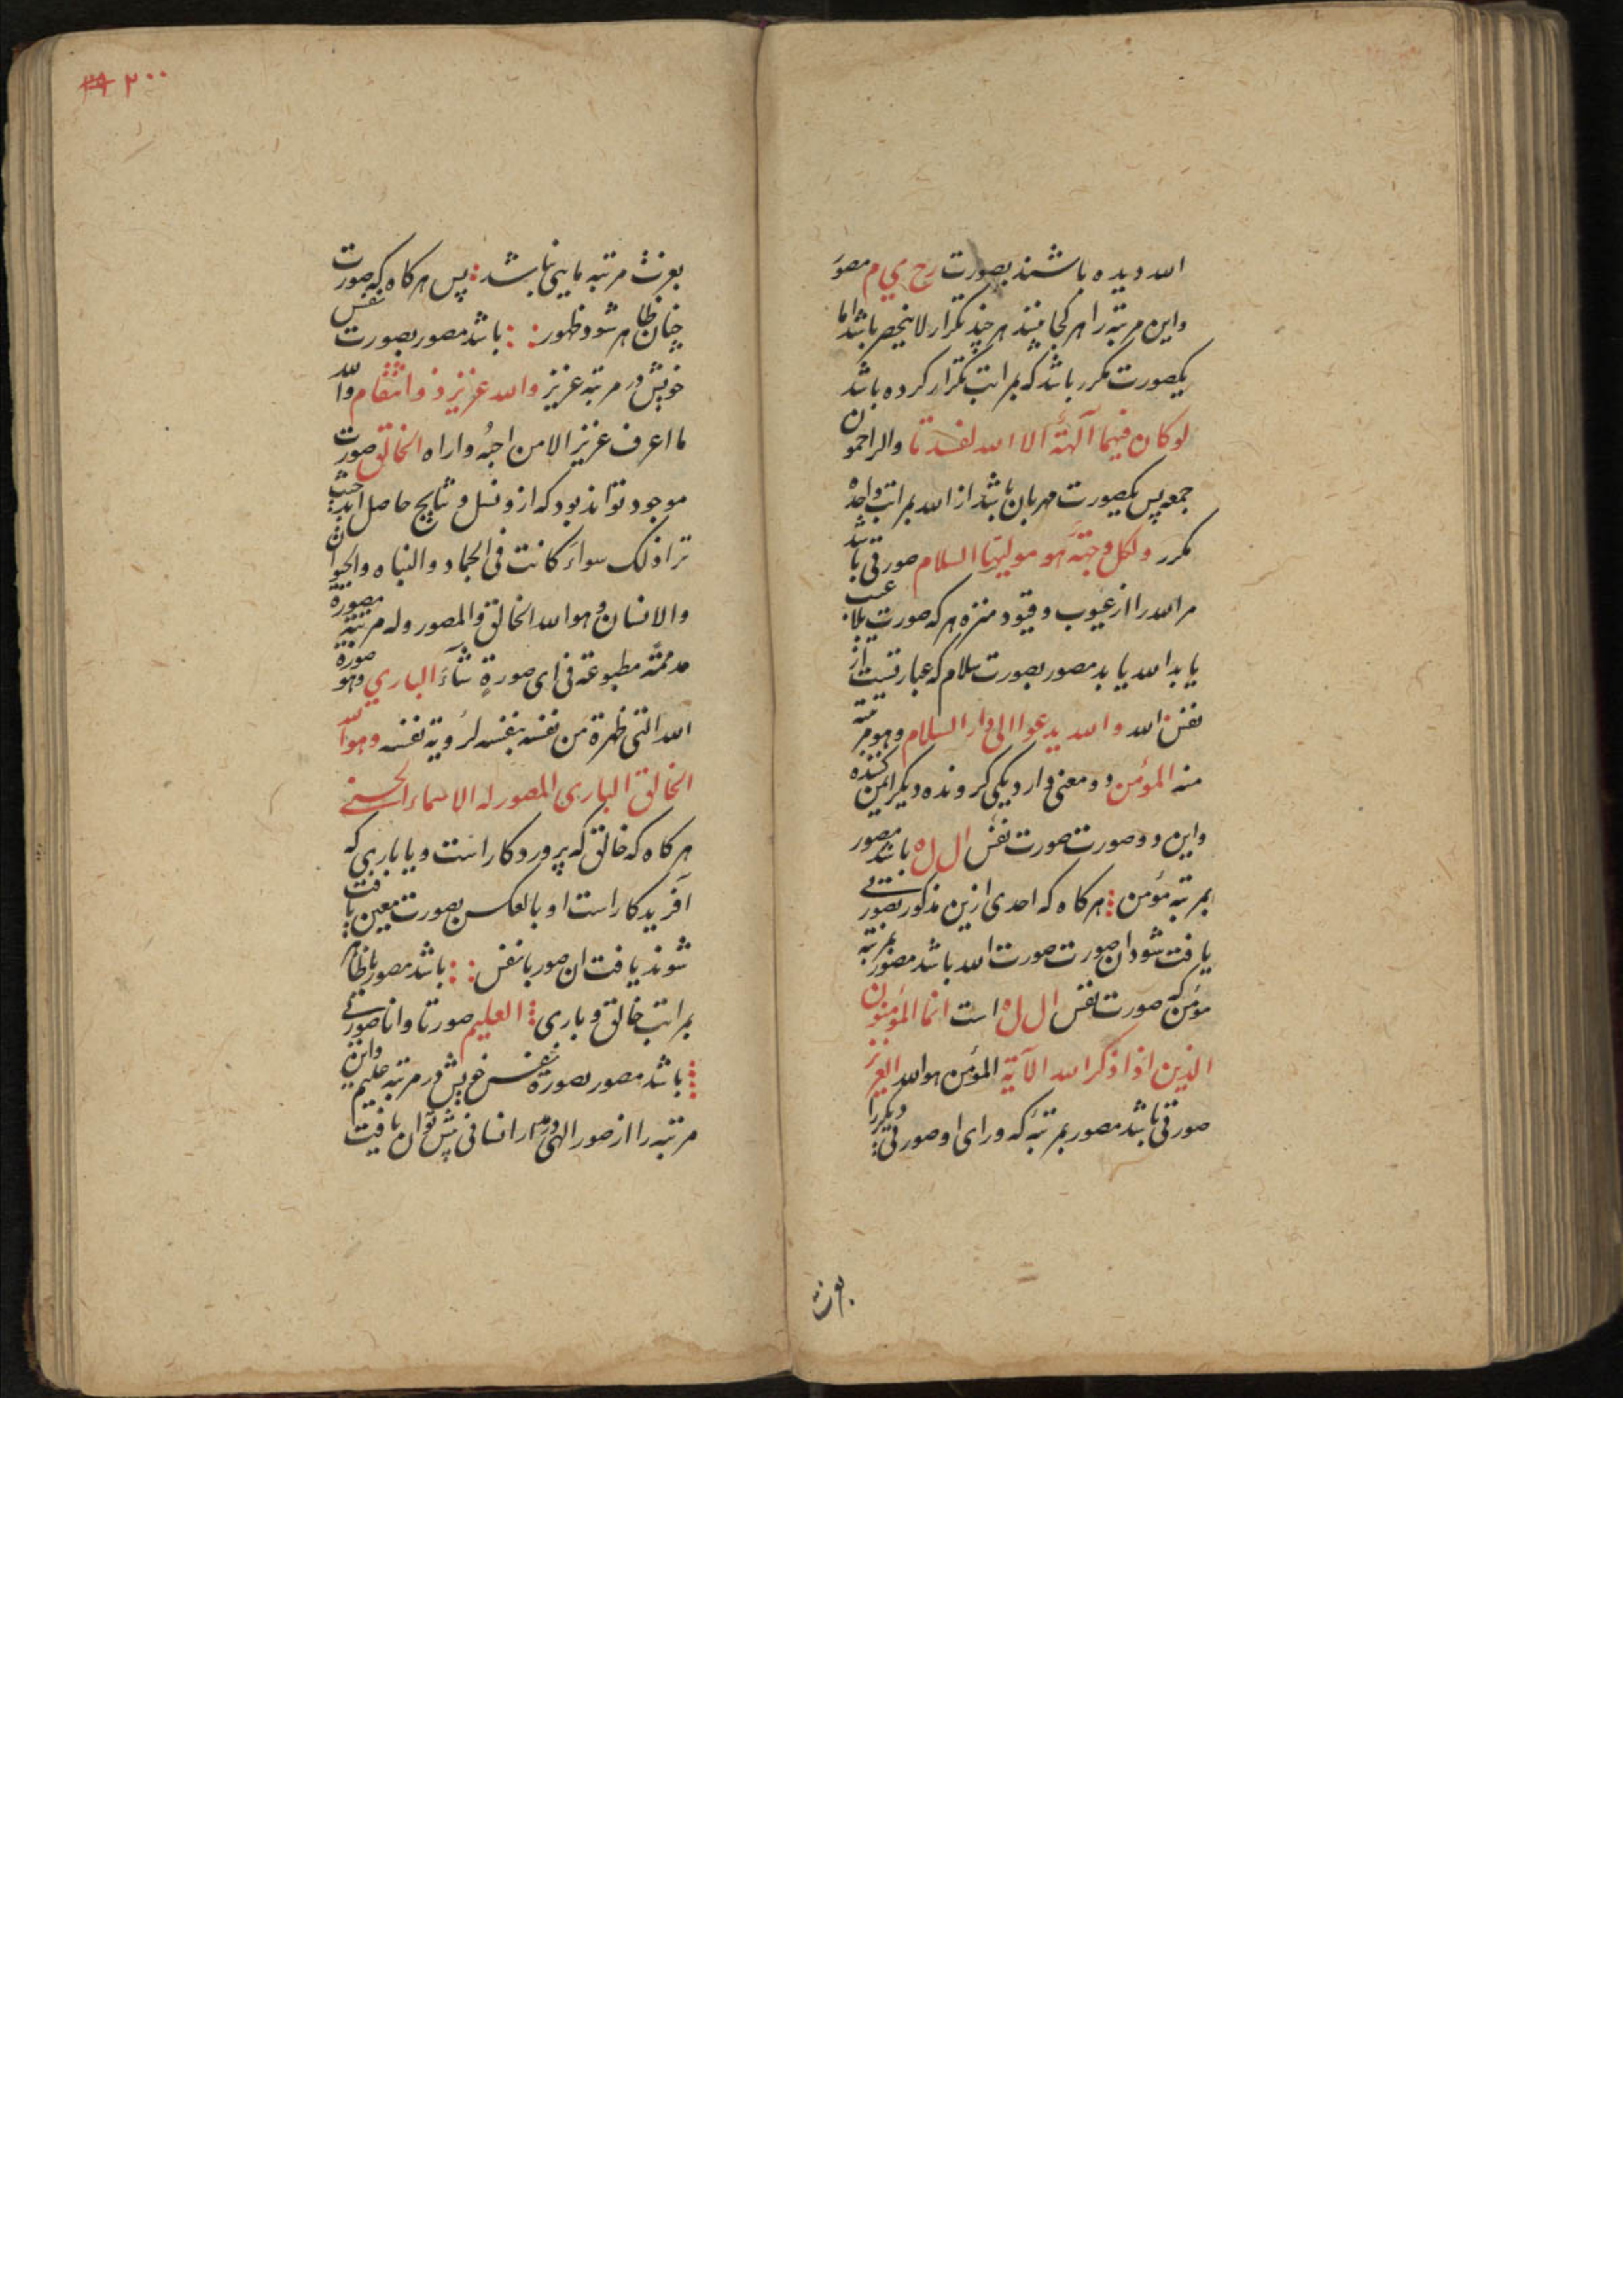 الله دیده باشند بصورت رح ي م مصور
واین مرتبه را هر کجا بینند هر چند تکرار لا ینحصر باشد اما
یکصورت مکرر باشد که بمراتب تکرار کرده باشد
لو کان فیهما آلهة الا الله لفسدتا والراحمون
جمعه پس یکصورت مهربان باشد از الله بمراتب واحده
مکرر ولکل وجهة هو مولیها السلام صورتی باشد
مر الله را از عیوب و قیود منزه هر که صورت بلا عیب
یابد الله یابد مصور بصورت سلام که عبارتیست از
نفس الله والله یدعوا الی دار السلام وهو مرتبة
منه المؤمن دو معنی دارد یکی کرونده دیکر ایمن کننده
واین دو صورت صورت نفس ال ل ه باشد مصور
بمرتبه مؤمن هر کاه که احدی ازین مذکور بصورتی
یافت شود ان صورت صورت الله باشد مصور بمرتبه
مؤمن که صورت نفس ال ل ه است انما المؤمنون
الذین اذا ذکر الله الآیة المؤمن هو الله العزیز
صورتی باشد مصور بمرتبه که ورای او صورتی دیکر را
بعزت
۲۰۰
بعزت مرتبه مایی نباشد پس هر کاه که صورت
چنان ظاهر شود ظهور باشد مصور بصورت نفس
خویش در مرتبه عزیز والله عزیز ذو انتقام والله
ما اعرف عزیز الا من احبه واراه الخالق صورت
موجود تواند بود که از و نسل و نتایج حاصل اید حیث
ترا ذلک سواء کانت فی الجماد والنباه والحیوان
والانسان وهو الله الخالق والمصور وله مرتبة مصورة
مطبوعة فی ای صورة شاء الباري وهو صورة
الله التی ظهرة من نفسه بنفسه لرؤیة نفسه وهو الله
الخالق الباری المصور له الاسماء الحسنی
هر کاه که خالق که پروردکار است و یا باری که
آفریدکار است او بالعکس بصورت معین یافت
شوند یافت ان صور با نفس باشد مصور با ظاهر
بمراتب خالق و باری العلیم صورتا وانا صورتی
باشد مصور بصورة نفس خویش در مرتبه علیم واین
مرتبه را از صور الهی در مدار انسانی بیش توان یافت